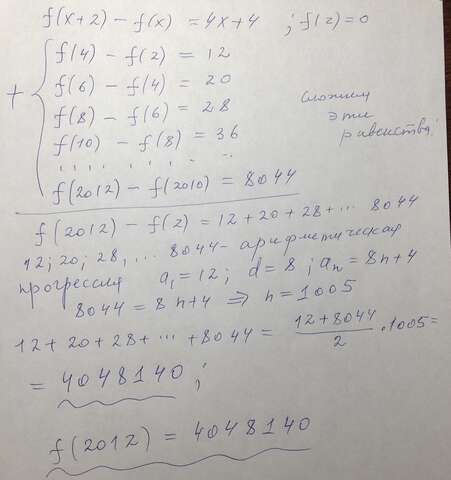 f(x+2) - f(x) = 4x+4 ; f(2)=0
f(4) - f(2) = 12
f(6) - f(4) = 20
f(8) - f(6) = 28
сложим
эти
равенства:
+
f(10) - f(8) = 36
f(2012) - f(2010) = 8044
f(2012) - f(2) = 12 + 20 + 28 + ... 8044
12; 20; 28, ... 8044 - арифметическая
прогрессия a₁ = 12; d = 8; aₙ = 8n+4
8044 = 8n+4 ⇒ n = 1005
12 + 20 + 28 + ... + 8044 = (12+8044)/2 · 1005 =
= 4048140;
f(2012) = 4048140